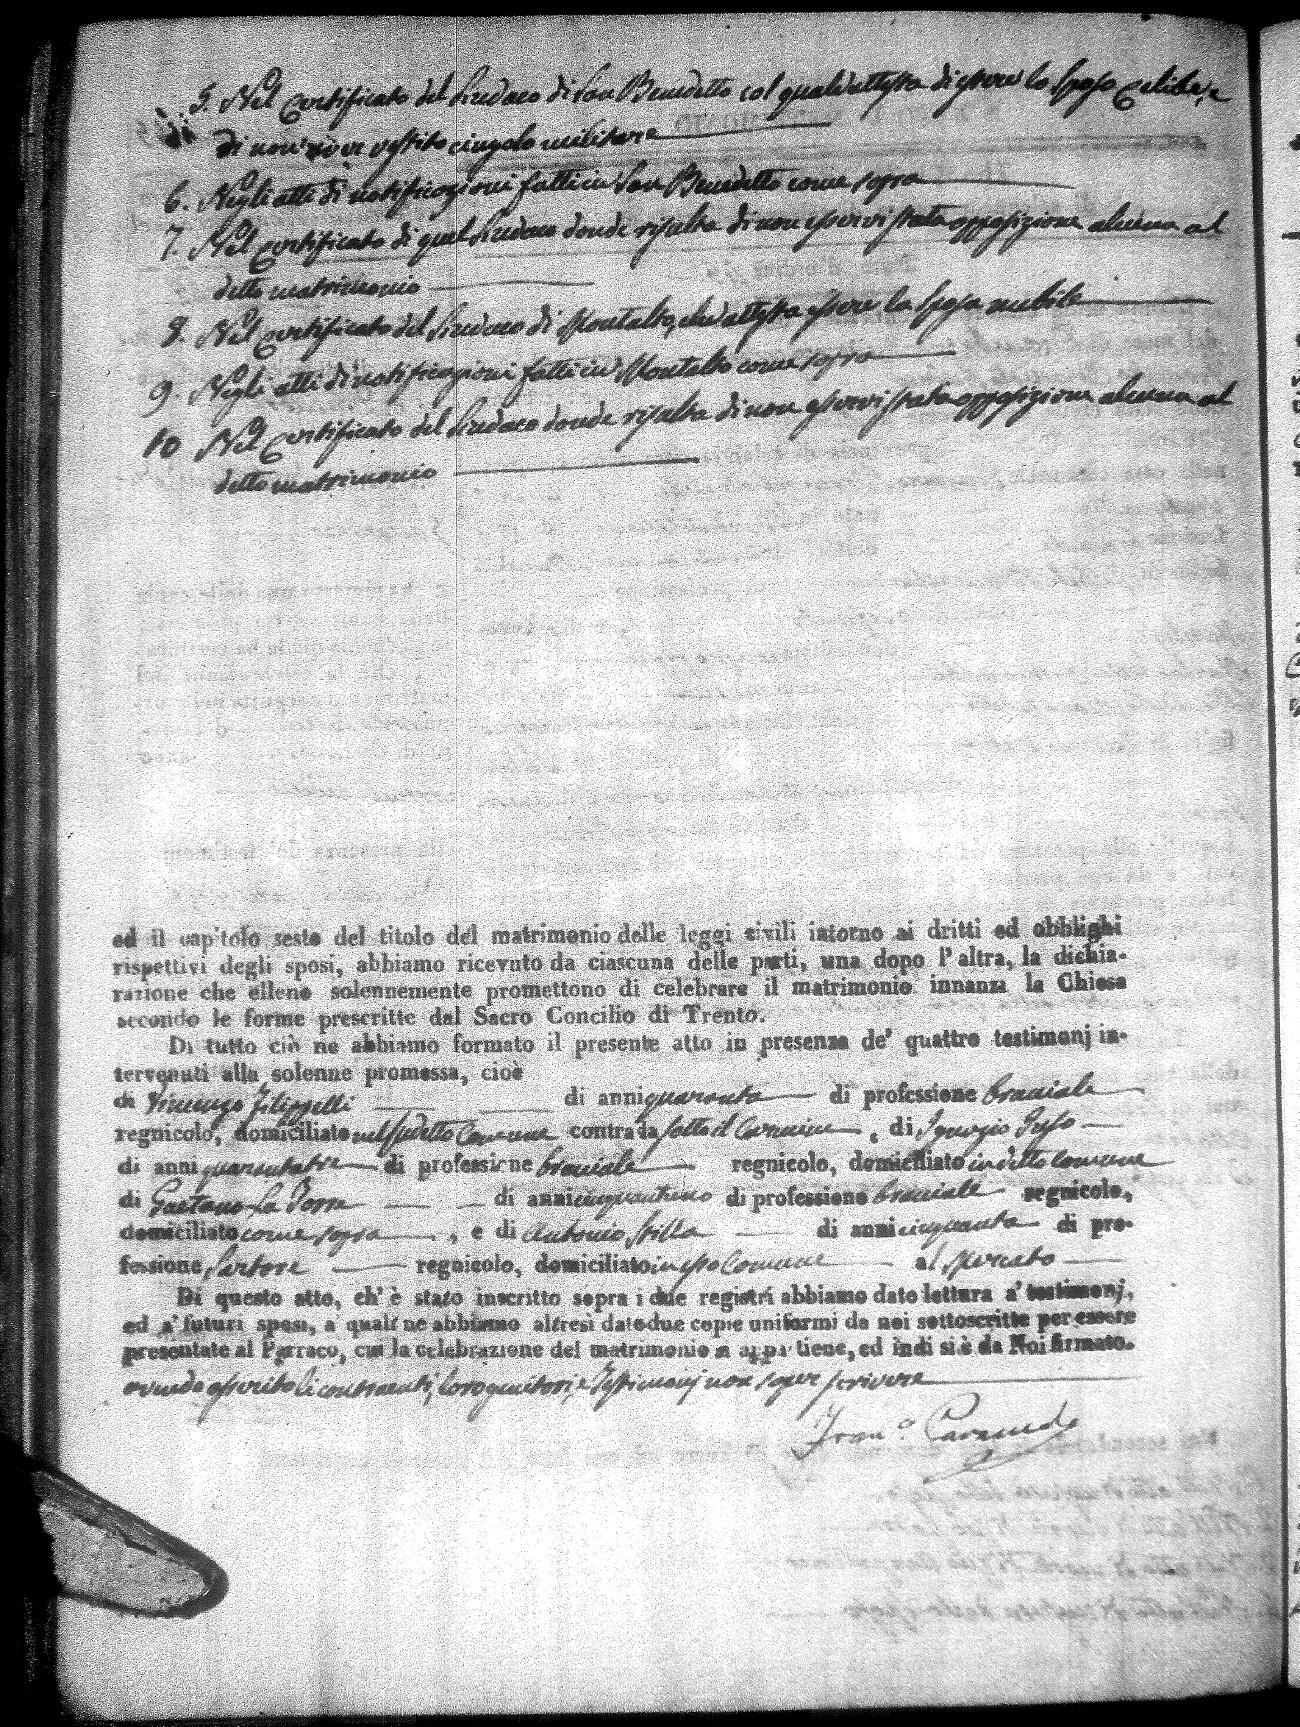 5. Nel certificato del Sindaco di San Benedetto col quale attesta di essere lo sposo celibe, e
di non aver vestito cingolo militare
6. Negli atti di notificazioni fatti in San Benedetto come sopra
7. Nel certificato di quel Sindaco donde risulta di non esservi stata opposizione alcuna al
detto matrimonio
8. Nel certificato del Sindaco di Montalto, che attesta essere la sposa nubile
9. Negli atti di notificazioni fatti in Montalto come sopra
10 Nel certificato del Sindaco donde risulta di non esservi stata opposizione alcuna al
detto matrimonio
ed il capitolo sesto del titolo del matrimonio delle leggi civili intorno ai dritti ed obblighi
rispettivi degli sposi, abbiamo ricevuto da ciascuna delle parti, una dopo l'altra, la dichia-
razione che elleno solennemente promettono di celebrare il matrimonio innanzi la Chiesa
secondo le forme prescritte dal Sacro Concilio di Trento.
Di tutto ciò ne abbiamo formato il presente atto in presenza de' quattro testimonj in-
tervenuti alla solenne promessa, cioè
di Vincenzo Filippelli di anni quaranta di professione bracciale
regnicolo, domiciliato nel sudetto Comune contrada sotto il Carmine, di Ignazio
di anni quarantatre di professione bracciale regnicolo, domiciliato in detto comune
di Gaetano La Torre di anni cinquantuno di professione bracciale regnicolo,
domiciliato come sopra, e di Antonio Stilla di anni cinquanta di pro-
fessione Sartore regnicolo, domiciliato in esso Comune al mercato
Di questo atto, ch' è stato inscritto sopra i due registri abbiamo dato lettura a' testimonj,
ed a' futuri sposi, a quali ne abbiamo altresì dato due copie uniformi da noi sottoscritte per essere
presentate al Parraco, cui la celebrazione del matrimonio si appartiene, ed indi si è da Noi firmato.
avendo asserito li contraenti, loro genitori, e Testimonj non saper scrivere
Fran.o